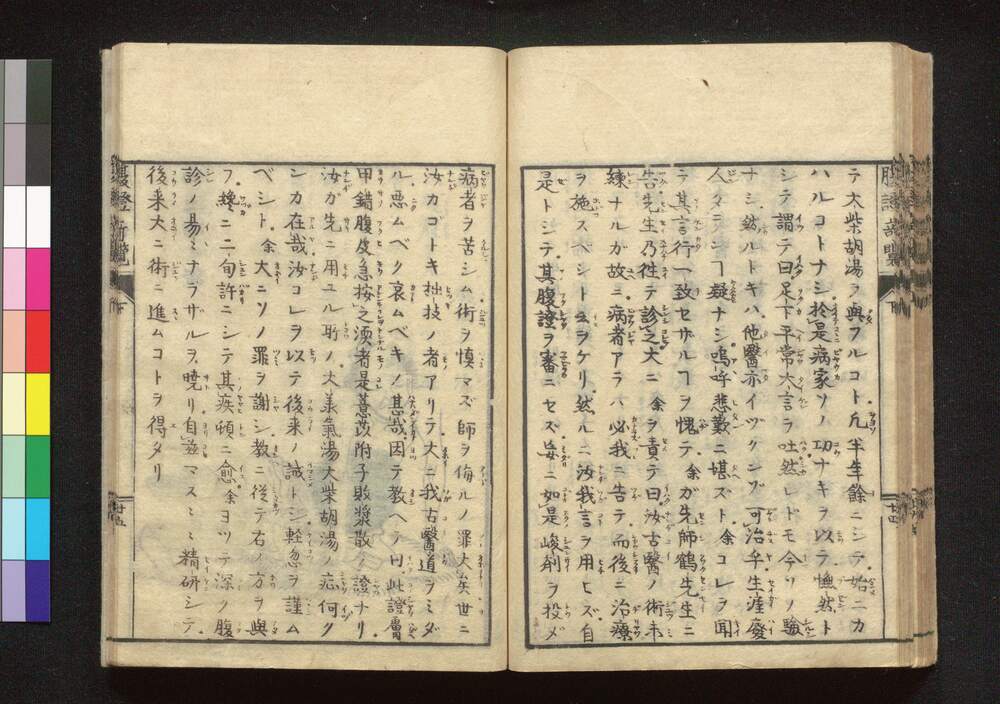 テ大柴胡湯ヲ與フルコト凡半年餘ニシテ始ニカ
ハルコトナシ於是病家ソノ功ナキヲ以テ憮然ト
シテ謂テ曰足下平常大言ヲ吐然レドモ今ソノ驗
ナシ然ルトキハ他醫亦イヅクンゾ可治乎生涯廢
人タランヿ疑ナシ嗚呼悲歎ニ堪ズト余コレヲ聞
テ其言行一致セザルヿヲ愧テ余ガ先師鶴先生ニ
告先生乃徃テ診之大ニ余ヲ責テ曰汝古醫ノ術未
練ナルガ故ニ病者アラハ必我ニ告テ而後ニ治療
ヲ施スベシト云ヲケリ然ルニ汝我言ヲ用ヒズ自
是トシテ其腹證ヲ審ニセズ妄ニ如是峻劑ヲ投メ
病者ヲ苦シム術ヲ慎マズ師ヲ侮ルノ罪大矣世ニ
汝カゴトキ拙技ノ者アリテ大ニ我古醫道ヲミダ
ル悪ムベク哀ムベキノ甚哉因テ教ヘテ曰此證胃
甲錯腹皮急按之濡者是薏苡附子敗漿散ノ證ナリ
汝ガ先ニ用ユル所ノ大義氣湯大柴胡湯ノ応何ク
ンカ在哉汝コレヲ以テ後来ノ誡トシ軽忽ヲ謹ム
ベシト余大ニソノ罪ヲ謝シ教ニ從テ右ノ方ヲ與
フ纔ニ二旬許ニシテ其疾頓ニ愈余ヨツテ深ノ腹
診ノ易ミナラザルヲ暁リ自茲マスミミ精研シテ
後来大ニ術ニ進ムコトヲ得タリ
腹證奇覽
下
廿五